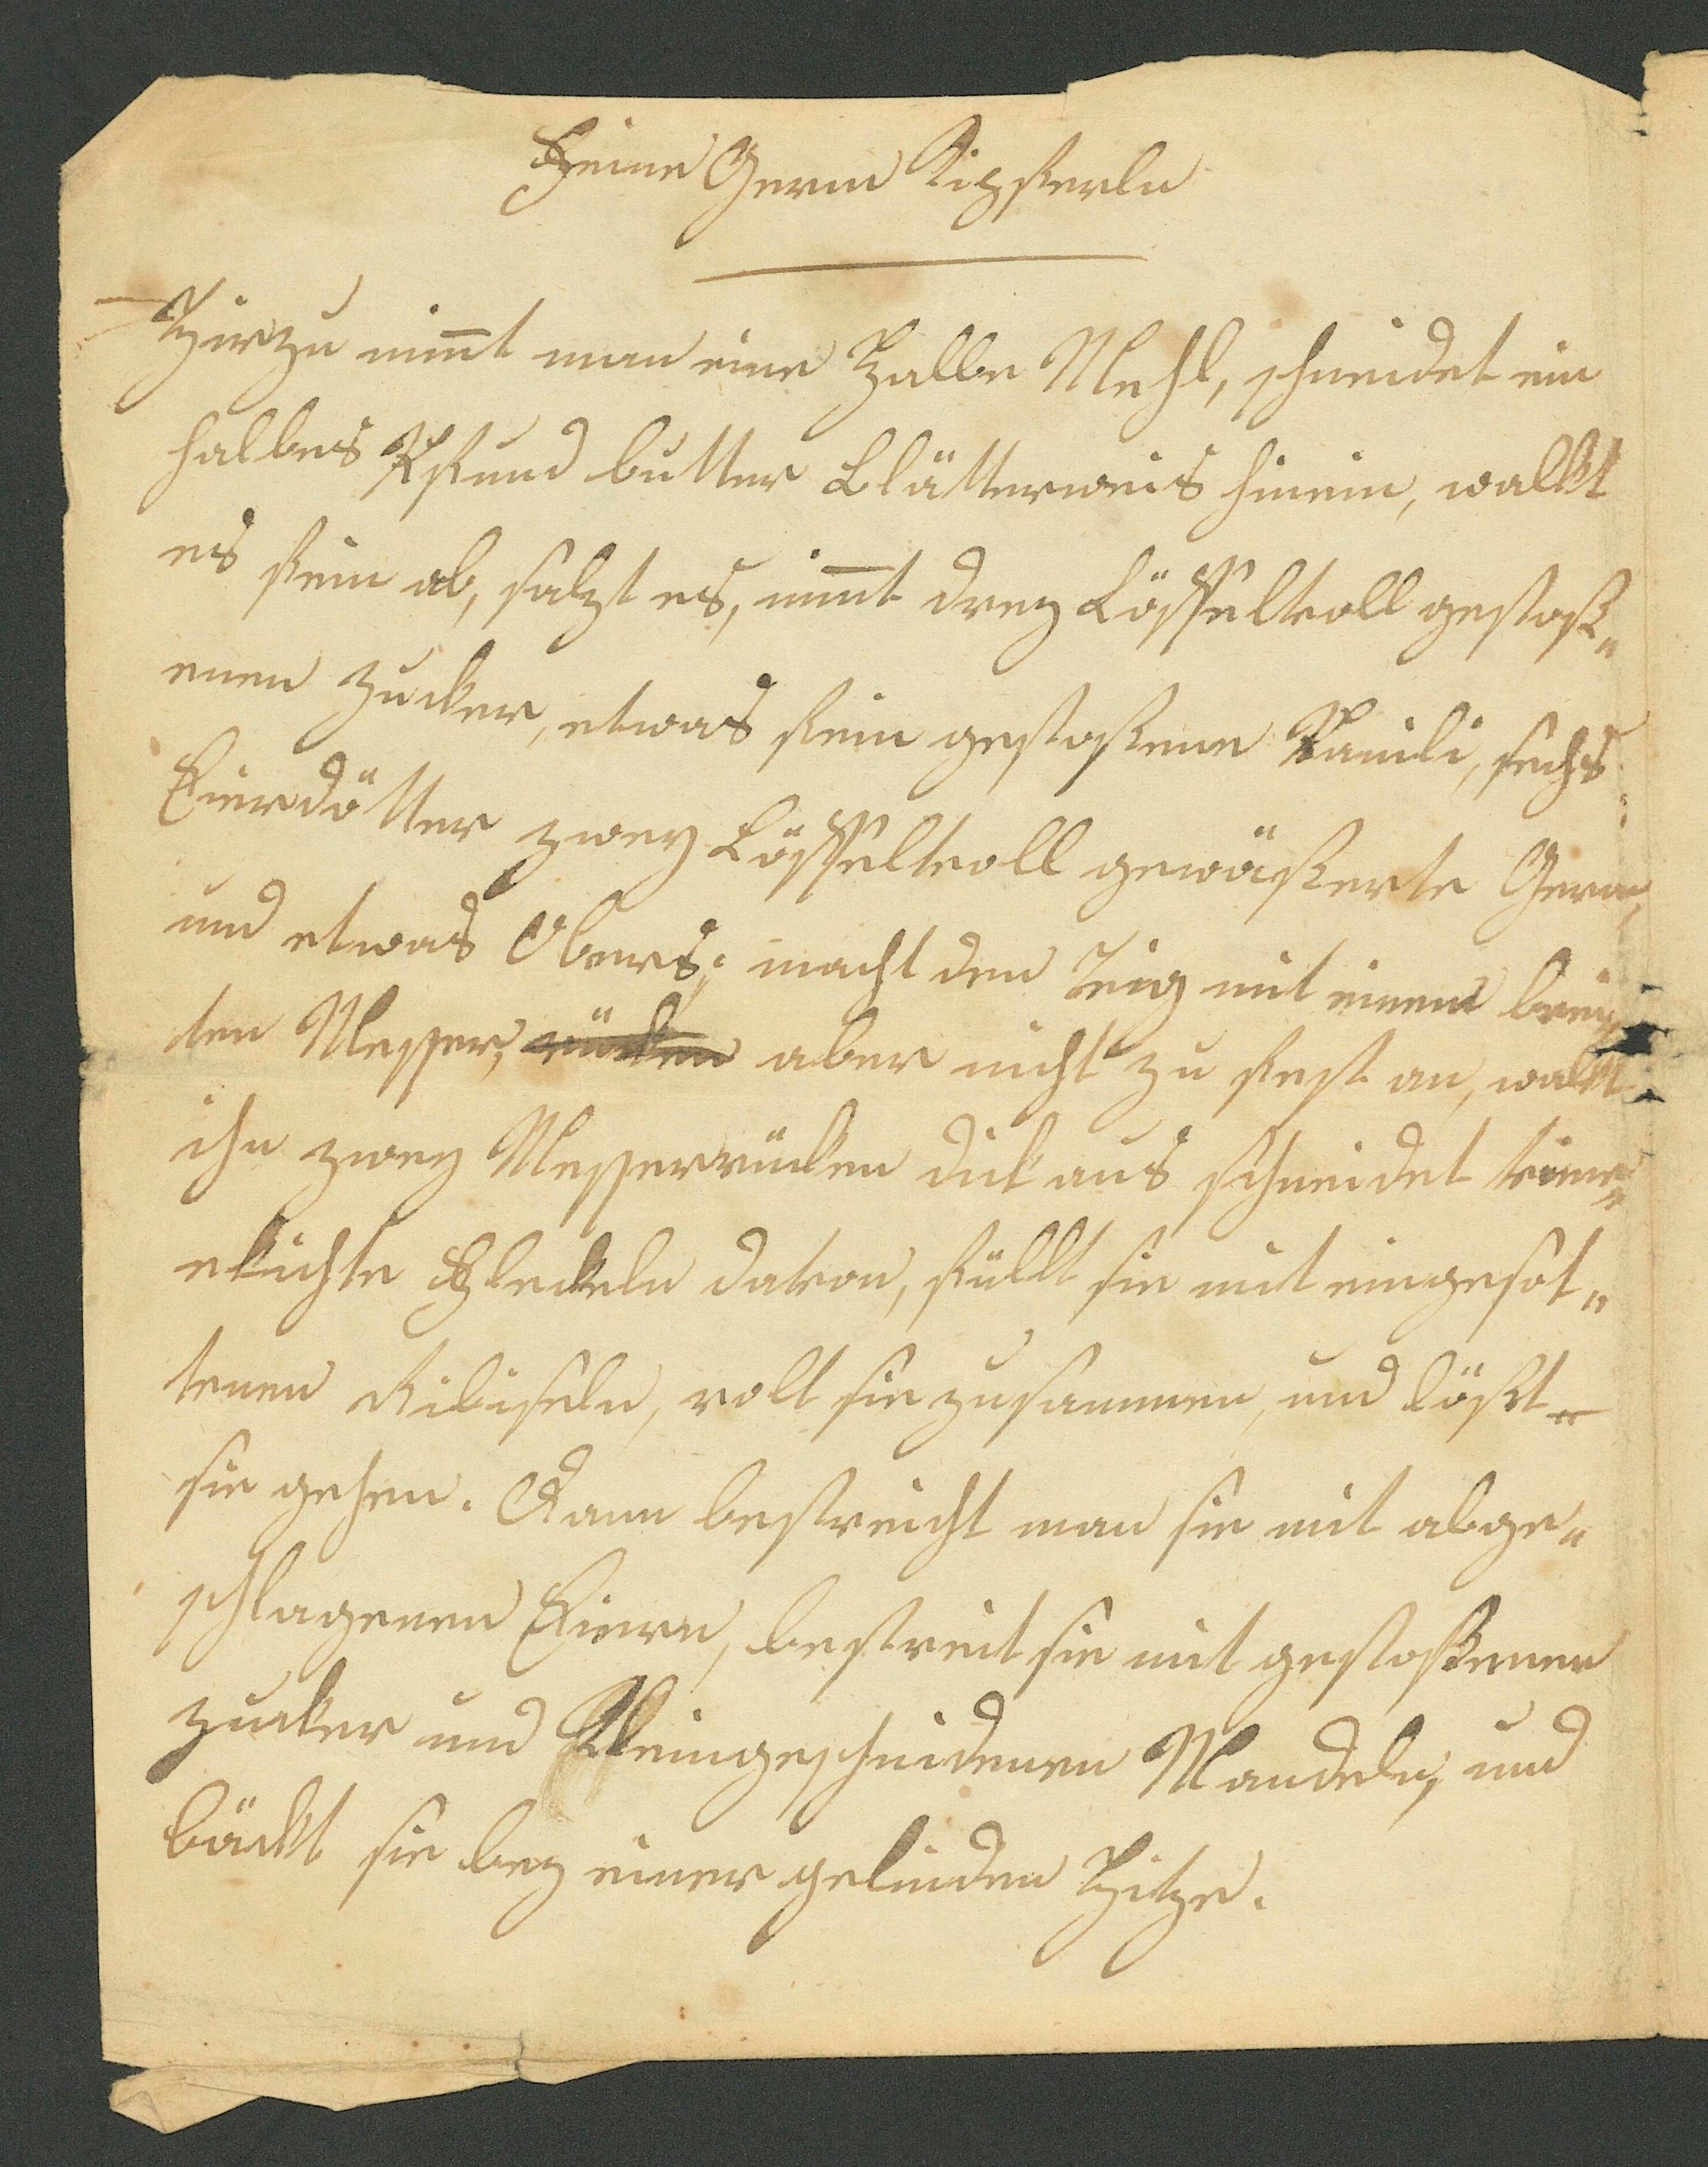 Feine Germ Kipferln
Hirzu nim̅t man eine Halbe Mehl, schneidet ein
halbes Pfund butter Blätterweis hinein, walkt
es fein ab, salzt es, nim̅t drey Löffelvoll gestoß„
enen Zucker, etwas fein gestoßene Vanili, sechs
Eierdötter zwey Löffelvoll gewäßerte Germ,
und etwas Obers; macht den Teig mit einem brei„
ten Messer, rücken aber nicht zu fest an, walkt
ihn zwey Messerrücken dick aus schneidet vier„
ekichte Fleckeln davon, füllt sie mit eingesot„
tenen Ribiseln, rolt sie zusammen, und läßt
sie gehen. Dann bestreicht man sie mit abge„
schlagenen Eiern, bestreit sie mit gestoßenen
Zucker und Kleingeschnidenen Mandeln, und
bäckt sie bey einer gelinden Hitze.